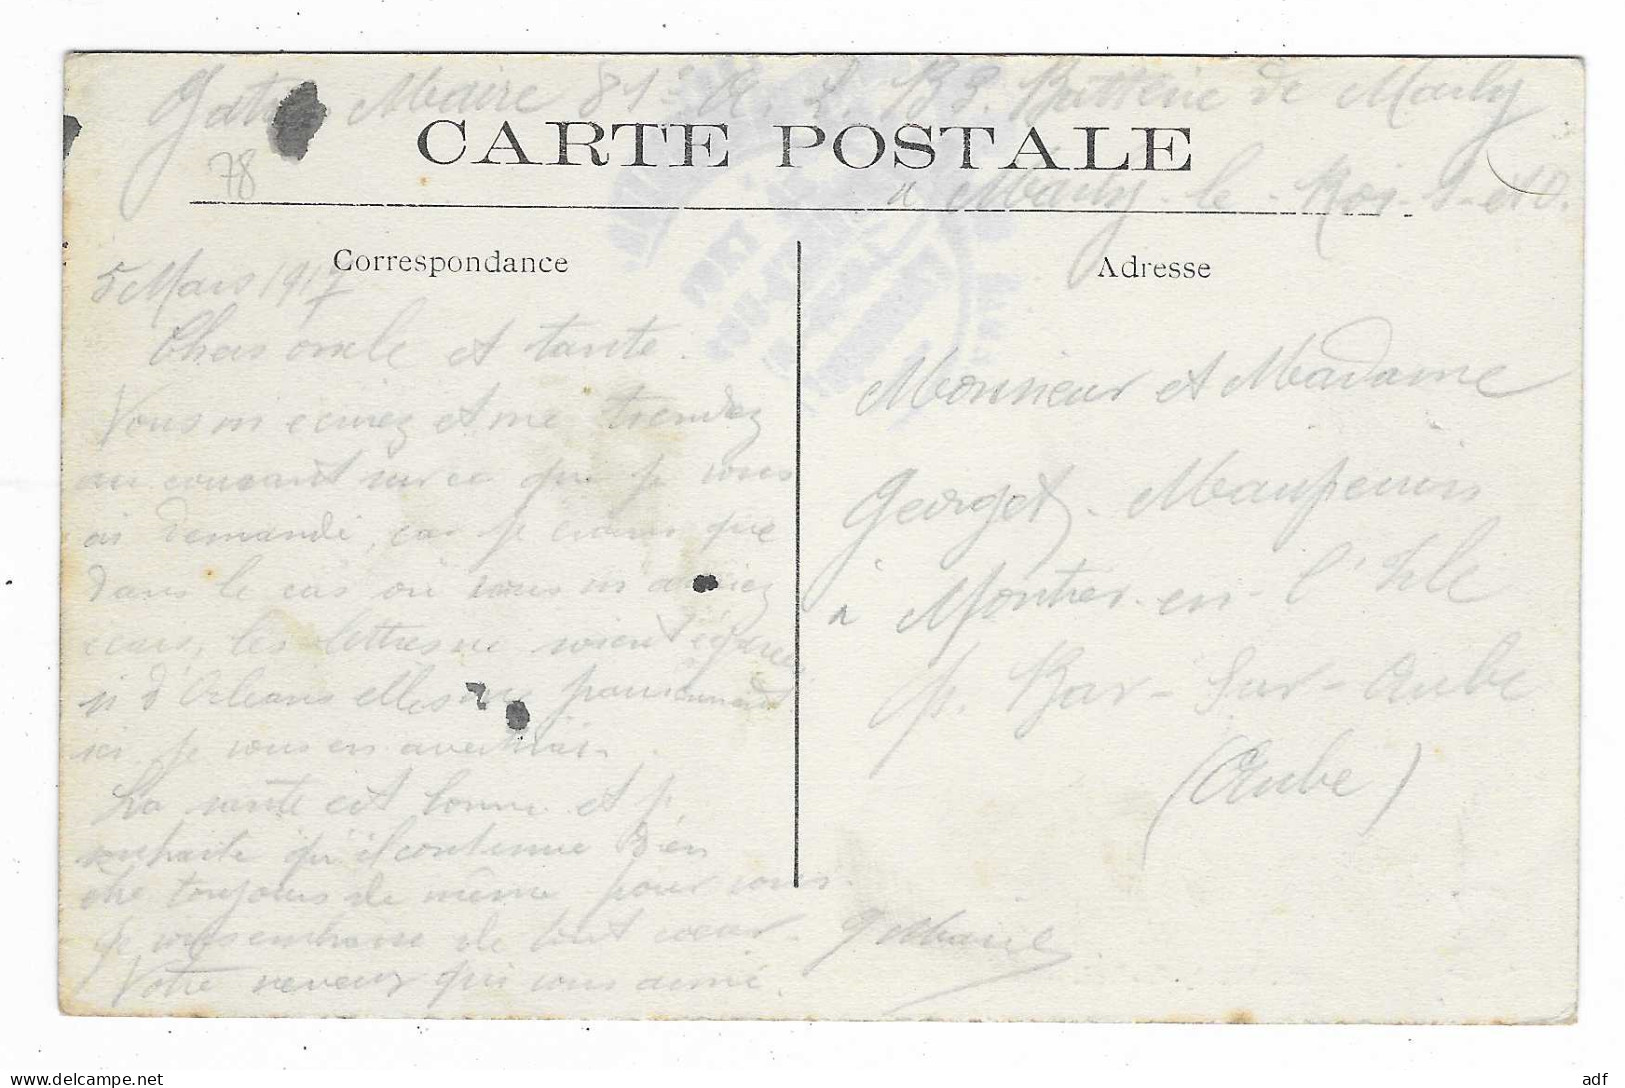 Maire 81e A. L. 83. Batterie de Marly
CARTE POSTALE
78
à Marly-le-Roi S-et-O.
Correspondance
Adresse
5 Mars 1917
Chers oncle et tante.
Vous m'écrirez et me rendez
au courant sur ce que je vous
ai demandé, car je crains que
dans le cas où vous m'auriez
écris, les lettres ne soient égarées
si d'Orléans elles ne
ici je vous en avertirais
La santé est bonne et je
souhaite qu'il continue bien
être toujours de même pour vous.
Je vous embrasse de tout cœur.
Votre neveu qui vous aime.
G Maire
Monsieur et Madame
Georget-Mauperrin
à Montier-en-l'Isle
p. Bar-Sur-Aube
(Aube)
FORT
delcampe.net
adf